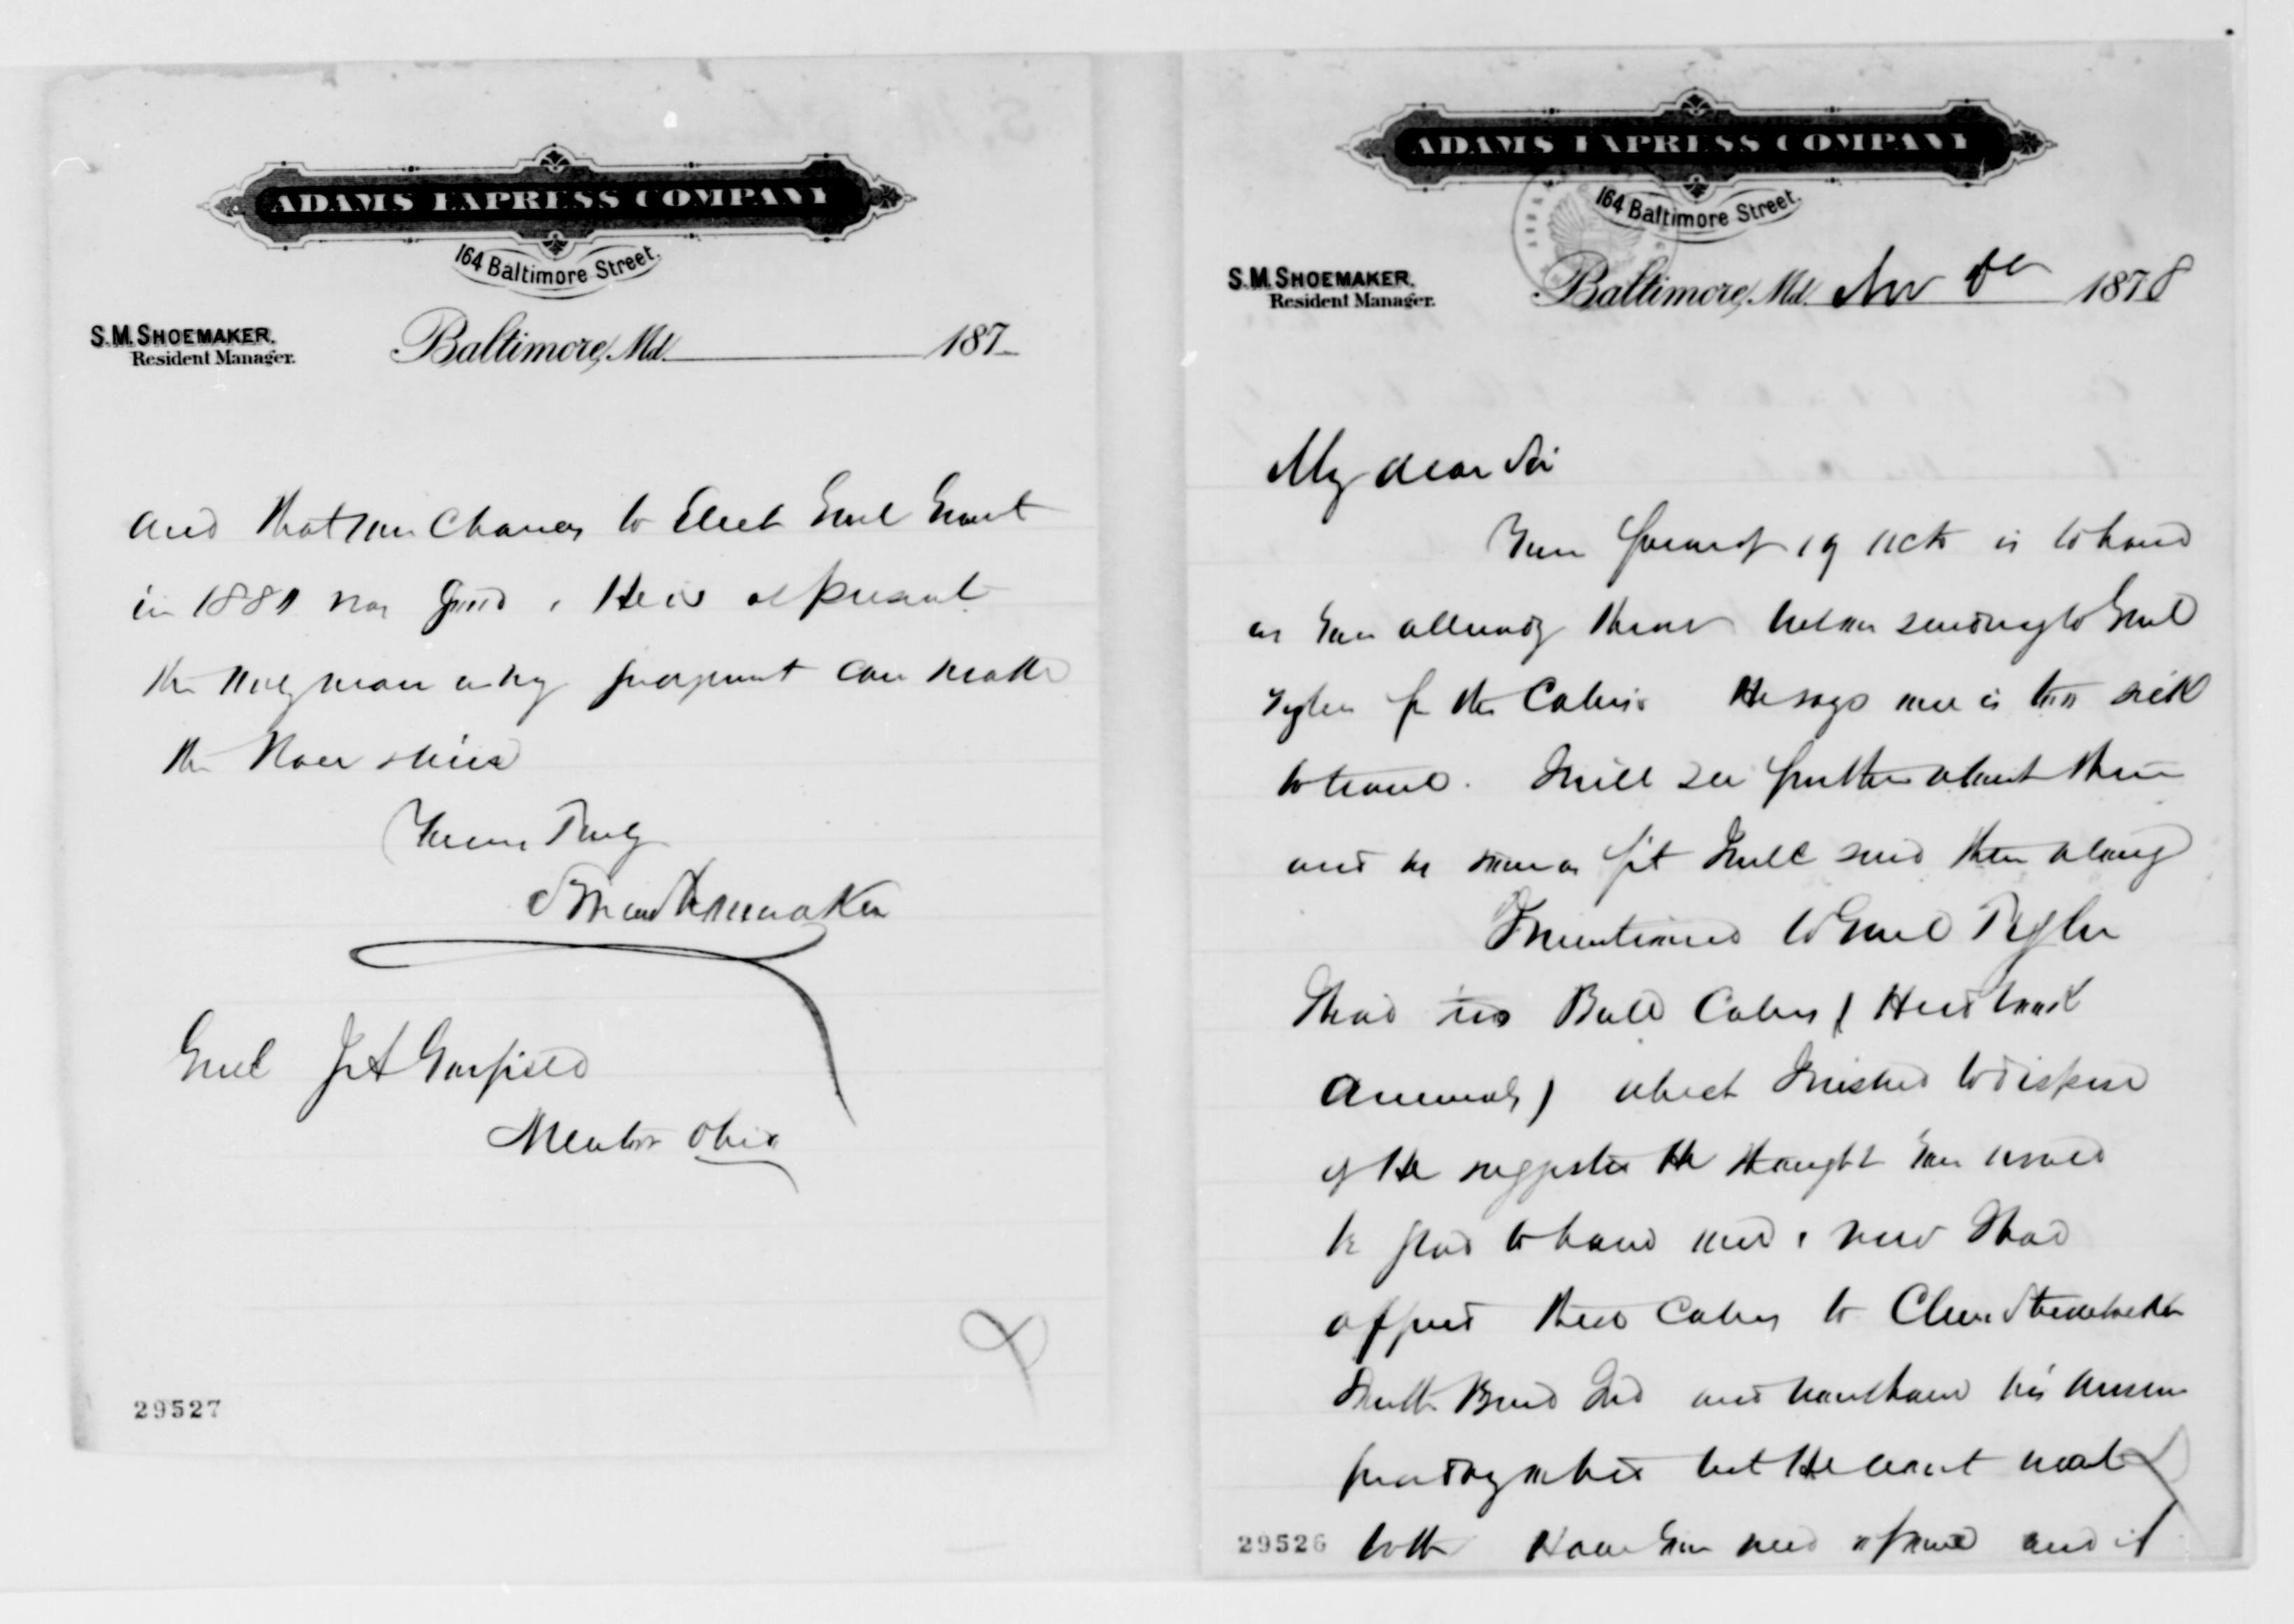 ADAMS EXPRESS COMPANY
164 Baltimore Street.
S. M. SHOEMAKER,
Resident Manager.
Baltimore, Md. 187
and that our chances to Elect Genl Grant
in 1880 are good. He is at present
the only man in my judgment can make
the
Yours Truly
Shoemaker
Genl J A Garfield
Mentor Ohio
29527
ADAMS EXPRESS COMPANY
164 Baltimore Street.
S. M. SHOEMAKER,
Resident Manager.
Baltimore, Md. Nov 1878
My dear Sir
Your favor of 19 Ulto is to hand
as you already know before sending to Genl
Tyler for the Calves He says one is too sick
to travel. I will see further about them
and as soon as fit I will send them along
I mentioned to Genl Tyler
I had two Bull Calves (Herd book
Animals) which I wished to dispose
of He suggested He thought you would
be glad to have one. now I had
offered these Calves to Clem Studebaker
South Bend Ind and now have his answer
but He can't want
both Have you need of one and if
29526